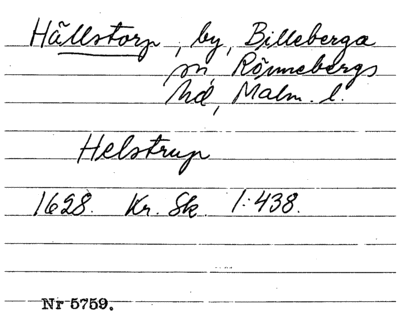 Hällstorp, by, Billeberga
sn, Rönnebergs
hd, Malm. l.
Helstrup
1628. Kr. Sk. 1:438.
Nr 5759.